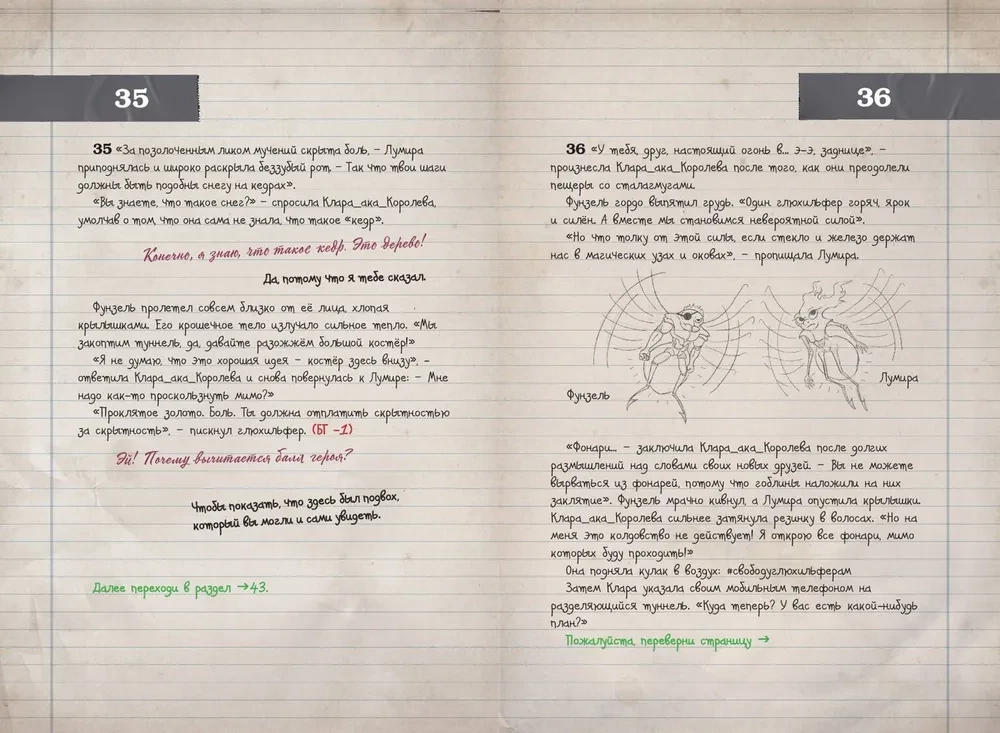 35
35 «За позолоченным ликом мучений скрыта боль, – Лумира
приподнялась и широко раскрыла беззубый рот, – Так что твои шаги
должны быть подобны снегу на кедрах».
«Вы знаете, что такое снег?» – спросила Клара_ака_Королева,
умолчав о том, что она сама не знала, что такое «кедр».
Конечно, я знаю, что такое кедр. Это дерево!
Да, потому что я тебе сказал.
Фунзель пролетел совсем близко от её лица, хлопая
крылышками. Его крошечное тело излучало сильное тепло. «Мы
закоптим туннель, да, давайте разожжём большой костёр!»
«Я не думаю, что это хорошая идея – костёр здесь внизу», –
ответила Клара_ака_Королева и снова повернулась к Лумире: – Мне
надо как-то проскользнуть мимо?»
«Проклятое золото. Боль. Ты должна отплатить скрытностью
за скрытность», – пискнул глюхильфер. (БГ –1)
Эй! Почему вычитается балл героя?
Чтобы показать, что здесь был подвох,
который вы могли и сами увидеть.
Далее переходи в раздел →43.
36
36 «У тебя, друг, настоящий огонь в... э-э, заднице», –
произнесла Клара_ака_Королева после того, как они преодолели
пещеры со сталагмугами.
Фунзель гордо выпятил грудь. «Один глюхильфер горяч, ярок
и силён. А вместе мы становимся невероятной силой».
«Но что толку от этой силы, если стекло и железо держат
нас в магических узах и оковах», – пропищала Лумира.
Фунзель
Лумира
«Фонари... – заключила Клара_ака_Королева после долгих
размышлений над словами своих новых друзей. – Вы не можете
вырваться из фонарей, потому что гоблины наложили на них
заклятие». Фунзель мрачно кивнул, а Лумира опустила крылышки.
Клара_ака_Королева сильнее затянула резинку в волосах. «Но на
меня это колдовство не действует! Я открою все фонари, мимо
которых буду проходить!»
Она подняла кулак в воздух: #свободуглюхильферам
Затем Клара указала своим мобильным телефоном на
разделяющийся туннель. «Куда теперь? У вас есть какой-нибудь
план?»
Пожалуйста, переверни страницу →